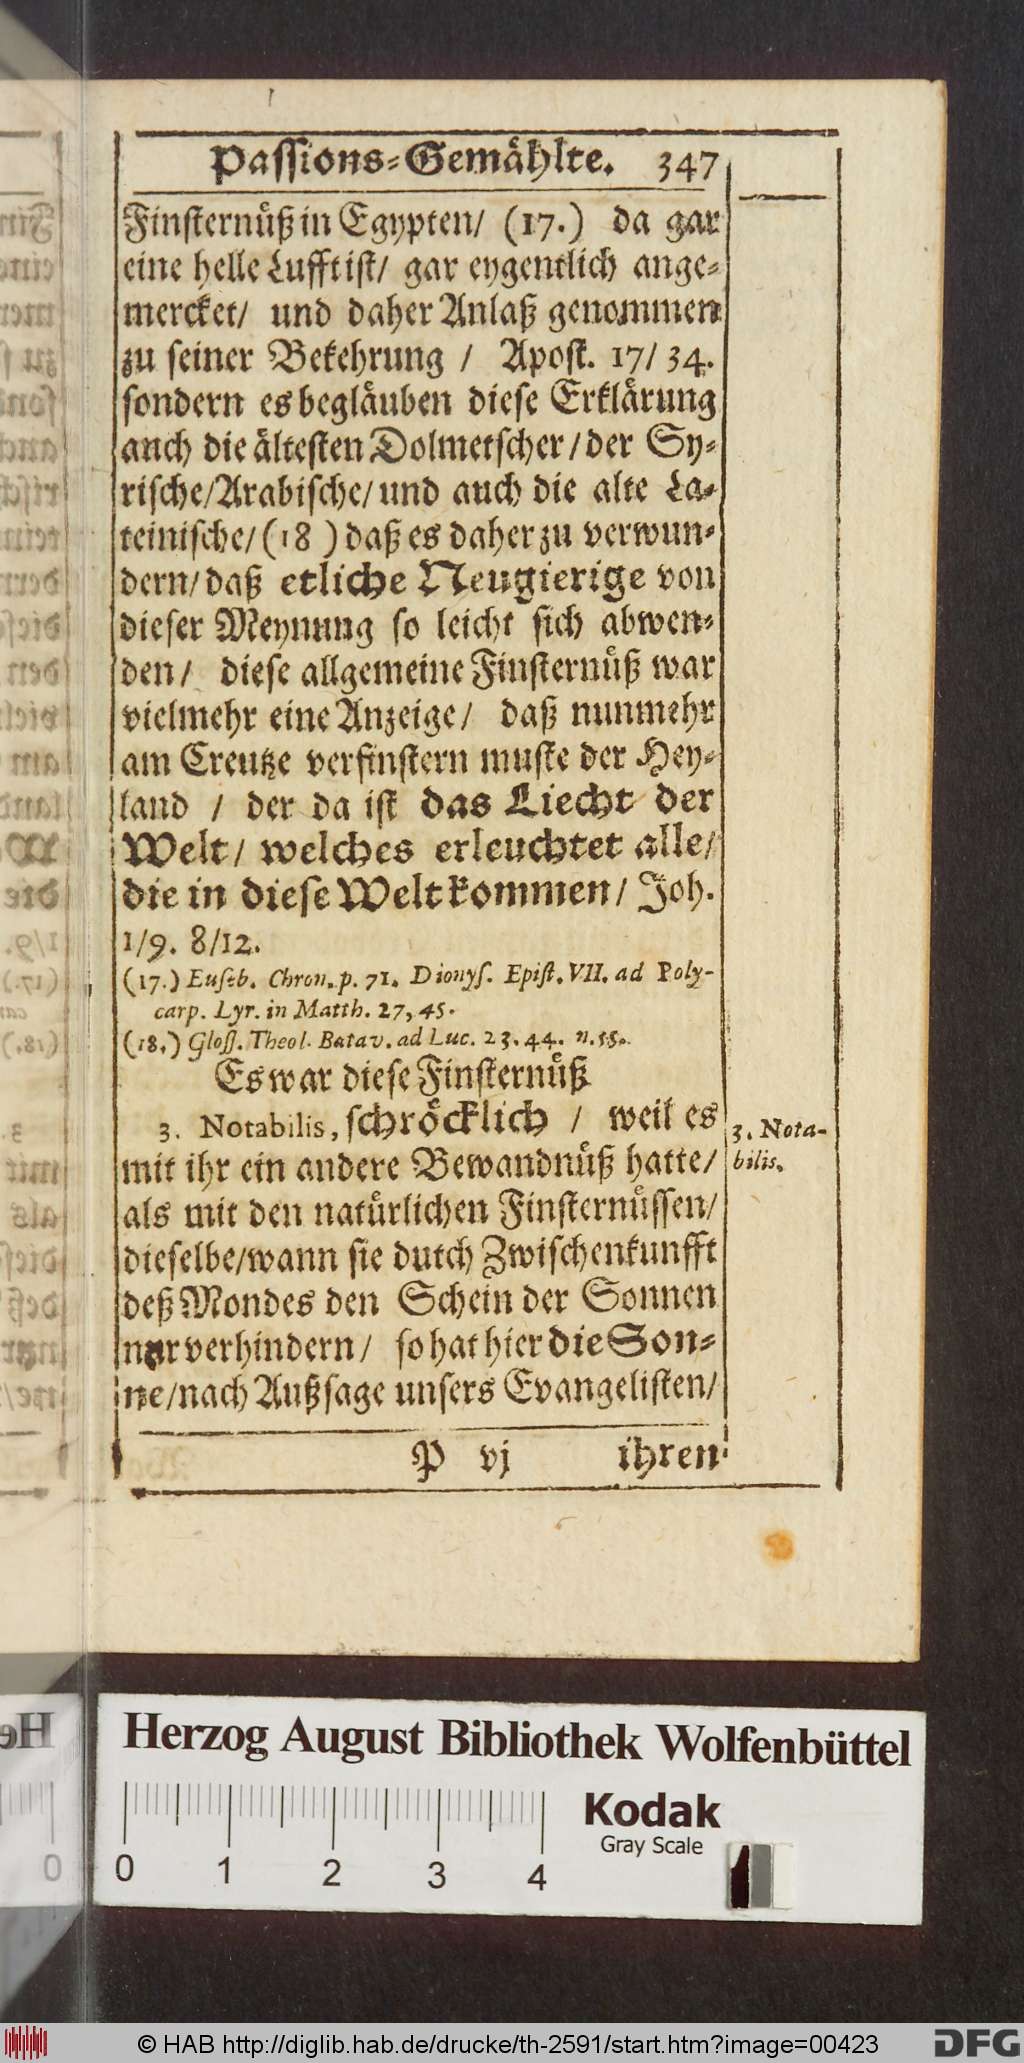 Passions-Gemählte. 347
Finsternüß in Egypten/ (17.) da gar
eine helle Lufft ist/ gar eygentlich ange-
mercket/ und daher Anlaß genommen
zu seiner Bekehrung / Apost. 17/34.
sondern es begläuben diese Erklärung
auch die ältesten Dolmetscher/der Sy-
rische/Arabische/und auch die alte La-
teinische/(18 ) daß es daher zu verwun-
dern/daß etliche Neugierige von
dieser Meynung so leicht sich abwen-
den/ diese allgemeine Finsternüß war
vielmehr eine Anzeige/ daß nunmehr
am Creutze verfinstern muste der Hey-
land / der da ist das Liecht der
Welt/ welches erleuchtet alle/
die in diese Welt kommen/ Joh.
1/9. 8/12.
(17.) Euseb. Chron. p. 71. Dionys. Epist. VII. ad Poly-
carp. Lyr. in Matth. 27, 45.
(18.) Gloss. Theol. Batav. ad Luc. 23. 44. n. 55.
Es war diese Finsternüß
3. Notabilis, schröcklich / weil es
3. Nota-
bilis.
mit ihr ein andere Bewandnüß hatte/
als mit den natürlichen Finsternüssen/
dieselbe/wann sie dutch Zwischenkunfft
deß Mondes den Schein der Sonnen
nur verhindern/ so hat hier die Son-
ne/nach Außsage unsers Evangelisten/
P vj ihren
Herzog August Bibliothek Wolfenbüttel
0 1 2 3 4
Kodak
Gray Scale
© HAB http://diglib.hab.de/drucke/th-2591/start.htm?image=00423
DFG